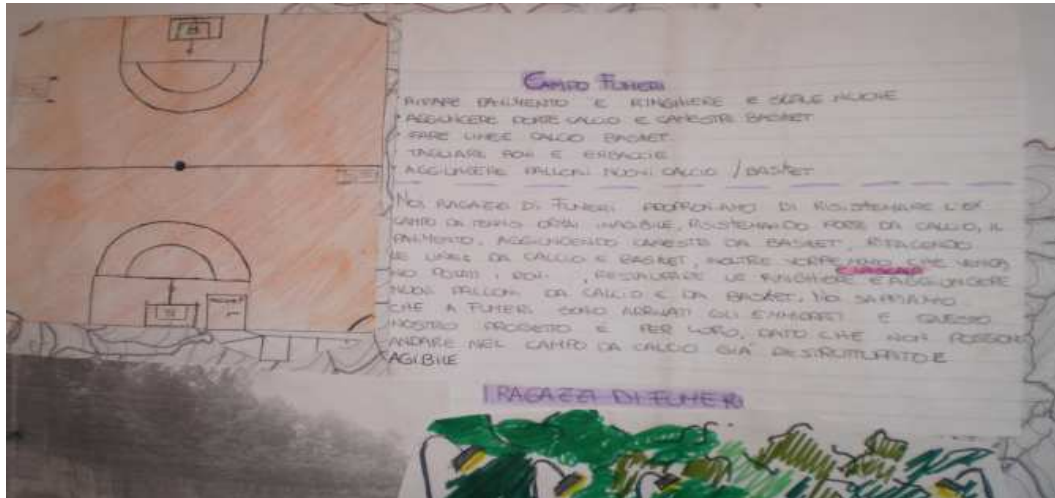 CAMPO FUMERI
RIFARE PAVIMENTO E RINGHIERE E SCALE NUOVE
• AGGIUNGERE PORTE CALCIO E CANESTRI BASKET
• FARE LINEE CALCIO BASKET
TAGLIARE ROVI E ERBACCIE
• AGGIUNGERE PALLONI NUOVI CALCIO / BASKET
NOI RAGAZZI DI FUMERI PROPONIAMO DI RISISTEMARE L'EX
CAMPO DA TENNIS ORMAI INAGIBILE, RISISTEMANDO PORTE DA CALCIO, IL
PAVIMENTO, AGGIUNGENDO CANESTRI DA BASKET, RIFACENDO
LE LINEE DA CALCIO E BASKET, INOLTRE VORREMMO CHE VENGA
NO POTATI I ROVI, RESTAURARE LE RINGHIERE E AGGIUNGERE
NUOVI PALLONI DA CALCIO E DA BASKET, NOI SAPPIAMO
CHE A FUMERI SONO ARRIVATI GLI E QUESTO
NOSTRO PROGETTO È PER LORO, DATO CHE NON POSSONO
ANDARE NEL CAMPO DA CALCIO GIÀ RISTRUTTURATO E
AGIBILE
I RAGAZZI DI FUMERI